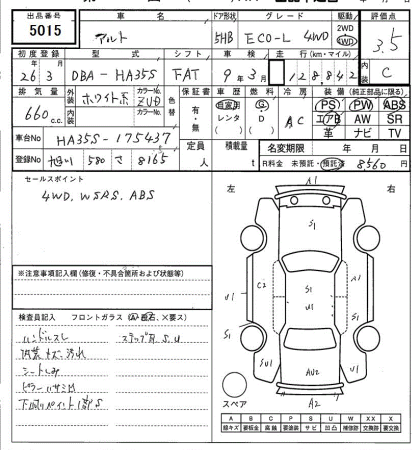 出品番号 車名 ドア形状 グレード 駆動 評価点
5015 アルト 5HB ECO-L 4WD 2WD 4WD 3.5
初度登録 型式 シフト 車検 走行(km・マイル) 内装
26年3月 DBA-HA35S FAT 9年3月 128,842 C
排気量 外装 カラーNo. 色替 保証書 車歴 燃料 冷房 装備(純正部品に限る)
660c.c. ホワイト系 ZUD 有・無 自家用 G AC PS PW ABS
内装 カラーNo. レンタ D エアB AW SR
革 ナビ TV
車台No HA35S-175437 定員 積載量 名変期限 年 月 日
登録No 旭川 580 さ 8165 人 t R料金 未預託・預託済 8,560円
セールスポイント
4WD. W SRS. ABS
左 右
A1
S1
U1 C2 S1 U1 U1
S1 S1
SU1 AU2 SU1
スペア A2
※注意事項記入欄(修復・不具合箇所および状態等)
検査員記入 フロントガラス
ハンドルスレ ステップ S.U
内装キズ、汚れ
シートしみ
ピラーハサミ
下廻りペイント
A B C P S U W X XX
線キズ 要板金 腐蝕 要塗装 サビ 凹凸 補修跡 要交換 交換済